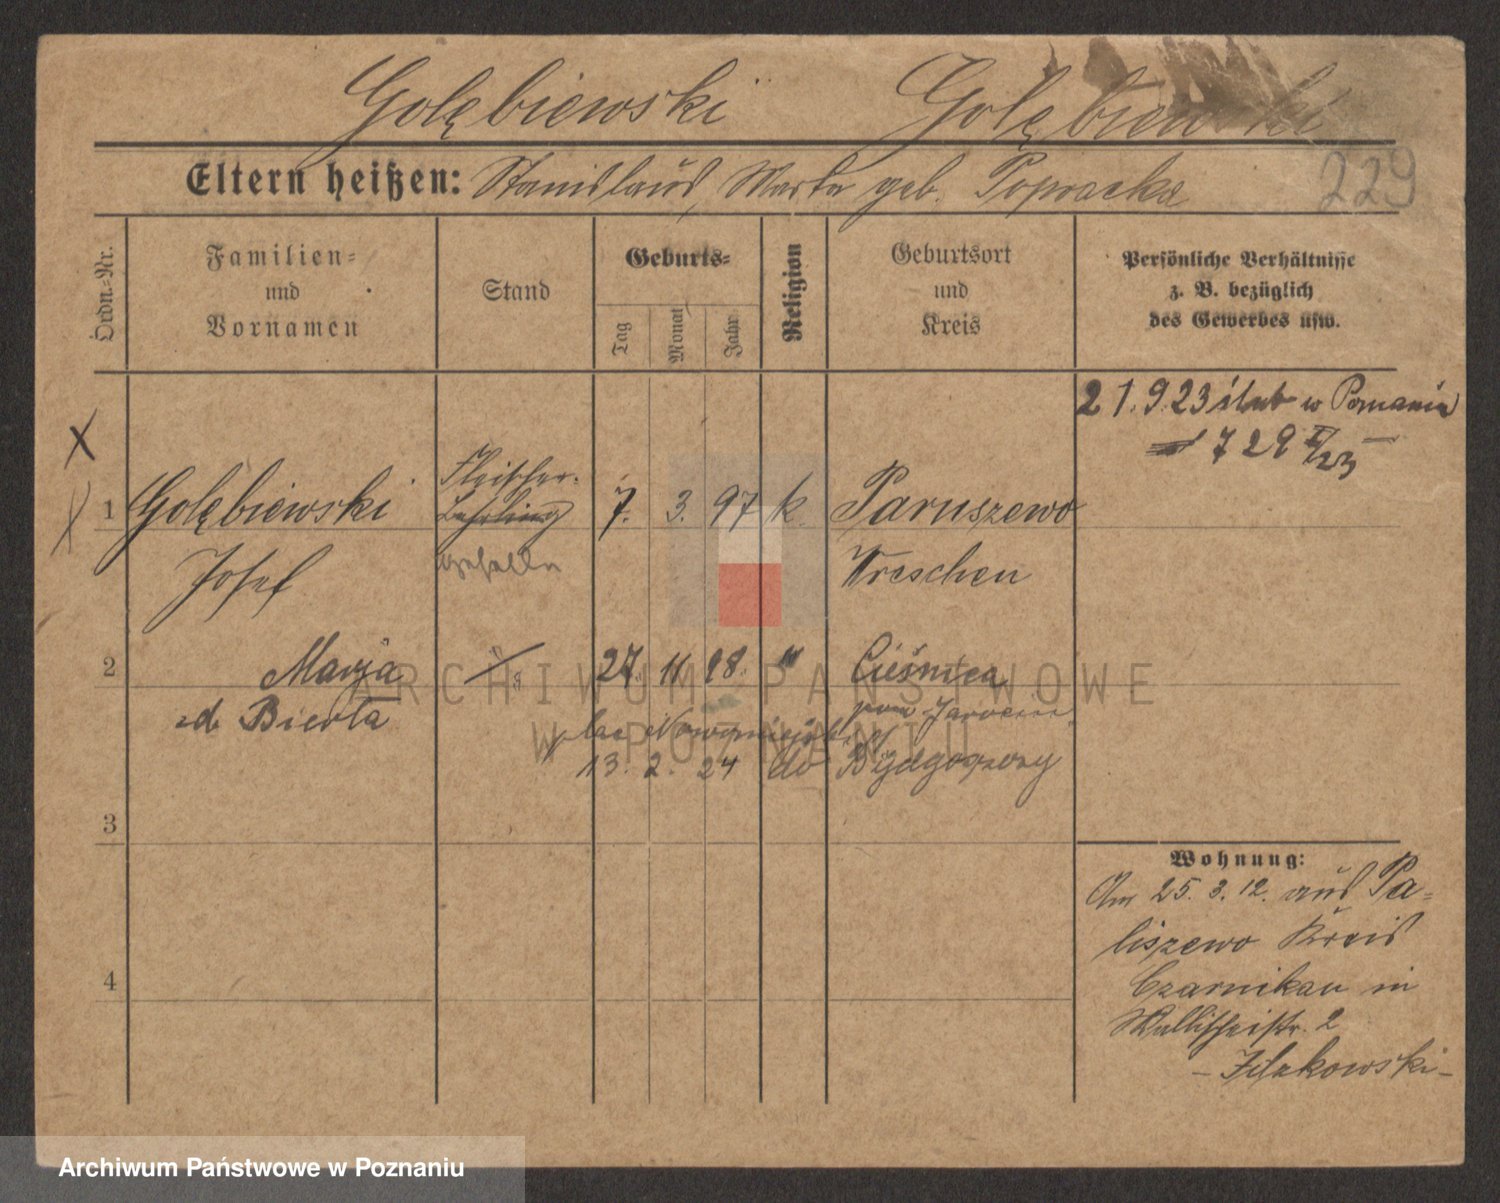 Golębiewski Golębiewski
Eltern heißen: Stanislaus, Marta geb. Popracka
229
Ordn.-Nr.
Familien-
und
Vornamen
Stand
Geburts-
Tag
Monat
Jahr
Religion
Geburtsort
und
Kreis
Persönliche Verhältnisse
z. B. bezüglich
des Gewerbes usw.
21.9.23 ślub w Poznaniu
729
X
Fleischer-
1 Golębiewski Lehrling 7. 3. 97 k. Paruszewo
Josef geselle Wreschen
2 Marja 27. 11 98. " Cieśnica
zd. Bierła pow Jarocin
plac Nowomiejski
13. 2. 24 do Bydgoszczy
3
4
Wohnung:
Am 25. 3. 12. aus Pa-
liszewo Kreis
Czarnikau in
Wallischeistr. 2
- Filzkowski -
ARCHIWUM PAŃSTWOWE
W POZNANIU
Archiwum Państwowe w Poznaniu